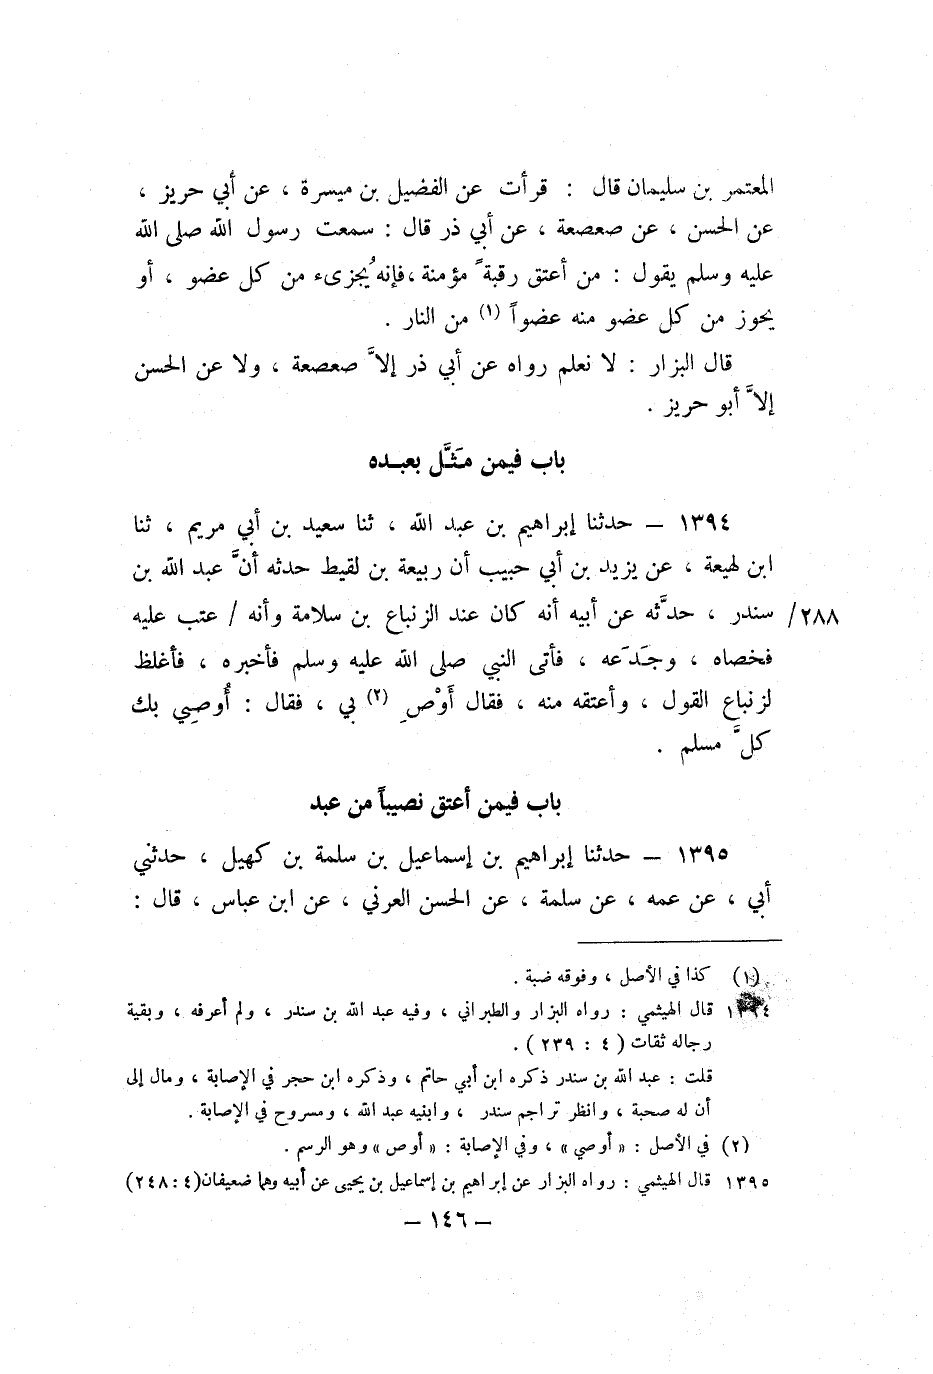 المعتمر بن سليمان قال : قرأت عن الفضيل بن ميسرة ، عن أبي حريز ،
عن الحسن ، عن صعصعة ، عن أبي ذر قال : سمعت رسول الله صلى الله
عليه وسلم يقول : من أعتق رقبةً مؤمنة ، فإنه يُجزىء من كل عضو ، أو
يحوز من كل عضو منه عضواً (١) من النار .
قال البزار : لا نعلم رواه عن أبي ذر إلاَّ صعصعة ، ولا عن الحسن
إلاَّ أبو حريز .
باب فيمن مَثَّل بعبده
١٣٩٤ – حدثنا إبراهيم بن عبد الله ، ثنا سعيد بن أبي مريم ، ثنا
ابن لهيعة ، عن يزيد بن أبي حبيب أن ربيعة بن لقيط حدثه أنَّ عبد الله بن
٢٨٨/ سندر ، حدَّثه عن أبيه أنه كان عند الزنباع بن سلامة وأنه / عتب عليه
فخصاه ، وجَدَعه ، فأتى النبي صلى الله عليه وسلم فأخبره ، فأغلظ
لزنباع القول ، وأعتقه منه ، فقال أَوْصِ (٢) بي ، فقال : أُوصِي بك
كلَّ مسلم .
باب فيمن أعتق نصيباً من عبد
١٣٩٥ – حدثنا إبراهيم بن إسماعيل بن سلمة بن كهيل ، حدثني
أبي ، عن عمه ، عن سلمة ، عن الحسن العرني ، عن ابن عباس ، قال :
(١) كذا في الأصل ، وفوقه ضبة .
١٣٩٤ قال الهيثمي : رواه البزار والطبراني ، وفيه عبد الله بن سندر ، ولم أعرفه ، وبقية
رجاله ثقات ( ٤ : ٢٣٩ ) .
قلت : عبد الله بن سندر ذكره ابن أبي حاتم ، وذكره ابن حجر في الإصابة ، ومال إلى
أن له صحبة ، وانظر تراجم سندر ، وابنيه عبد الله ، ومسروح في الإصابة .
(٢) في الأصل : « أوصي» ، وفي الإصابة : « أوص » وهو الرسم .
١٣٩٥ قال الهيثمي : رواه البزار عن إبراهيم بن إسماعيل بن يحيى عن أبيه وهما ضعيفان(٤ : ٢٤٨)
– ١٤٦ –